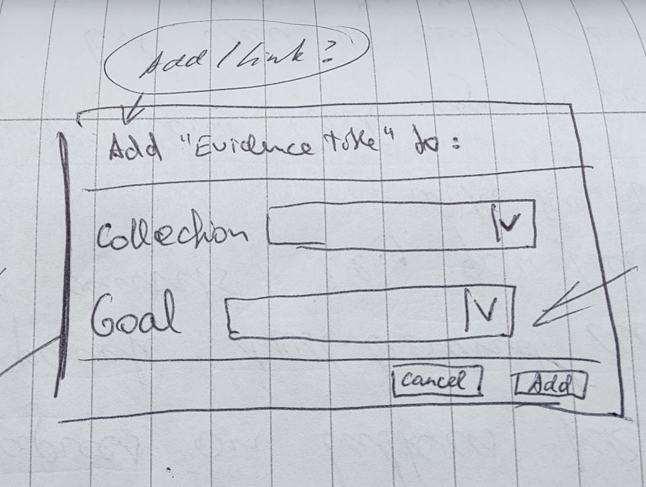 Add / Link?
Add "Evidence title" to:
Collection
Goal
Cancel
Add